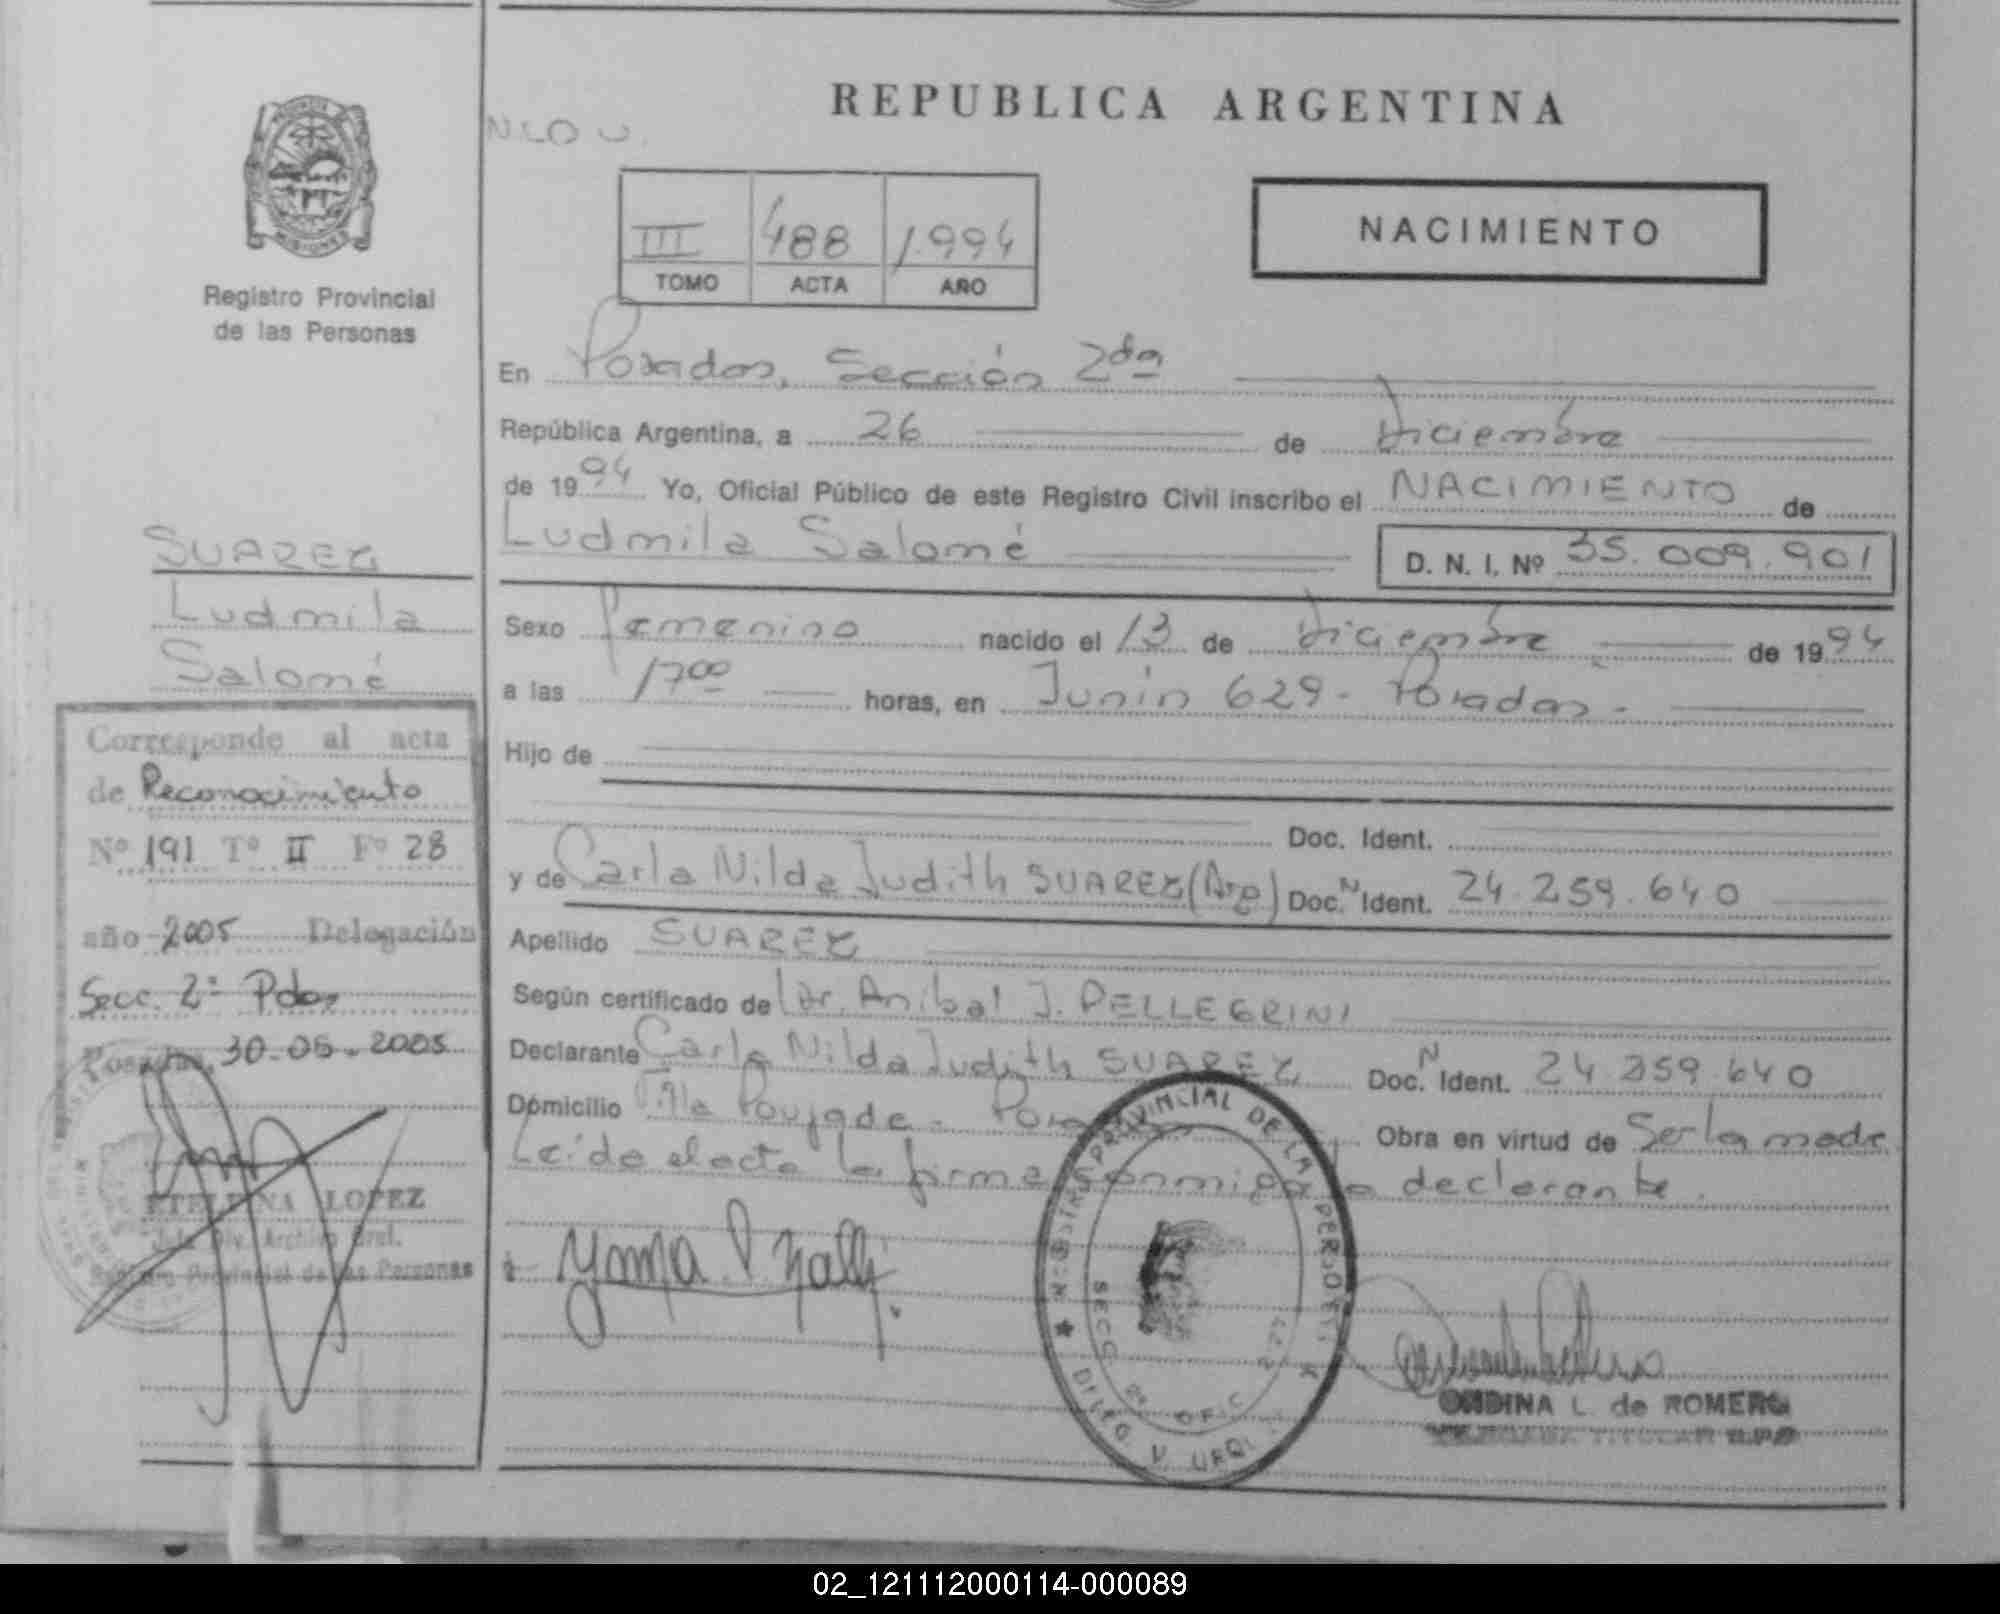 REPUBLICA ARGENTINA
N.LO U.
III 488 1.994
TOMO ACTA AÑO
NACIMIENTO
PROVINCIA
MISIONES
Registro Provincial
de las Personas
SUAREZ
Ludmila
Salomé
Corresponde al acta
de Reconocimiento
Nº 191 Tº II Fº 28
año 2005 Delegación
Secc. 2ª Pdas
Posadas, 30-06-2005
ETELVINA LOPEZ
Jefa Div. Archivo Gral.
Registro Provincial de las Personas
En Posadas, Sección 2da
República Argentina, a 26 de Diciembre
de 1994 Yo, Oficial Público de este Registro Civil inscribo el NACIMIENTO de
Ludmila Salomé D. N. I. Nº 35.009.901
Sexo Femenino nacido el 13 de Diciembre de 1994
a las 17oo horas, en Junín 629 - Posadas -
Hijo de
Doc. Ident.
y de Carla Nilda Judith SUAREZ (Arg) Doc. N Ident. 24.259.640
Apellido SUAREZ
Según certificado de Dr. Aníbal J. PELLEGRINI
Declarante Carla Nilda Judith SUAREZ Doc. N Ident. 24.259.640
Domicilio Villa Poujade - Posadas Obra en virtud de Ser la madre
Leída el acta la firma conmigo la declarante.
REGISTRO PROVINCIAL DE LA PERSONAS
SECC. 2ª OFIC.
DPTO. V. URQ.
ONDINA L. de ROMERO
TITULAR R.P.P.
02_121112000114-000089